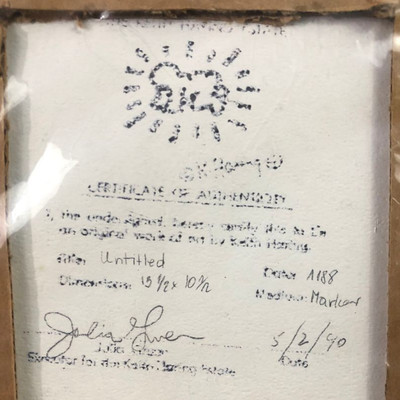 CERTIFICATE OF AUTHENTICITY
I, the undersigned, hereby certify this to be
an original work of art by Keith Haring.
Title: Untitled
Date: 1188
Dimensions: 13 1/2 x 10 1/2
Medium: Marker
Julia Gruen
5/2/90
Julia Gruen
Date
Director for the Keith Haring Estate